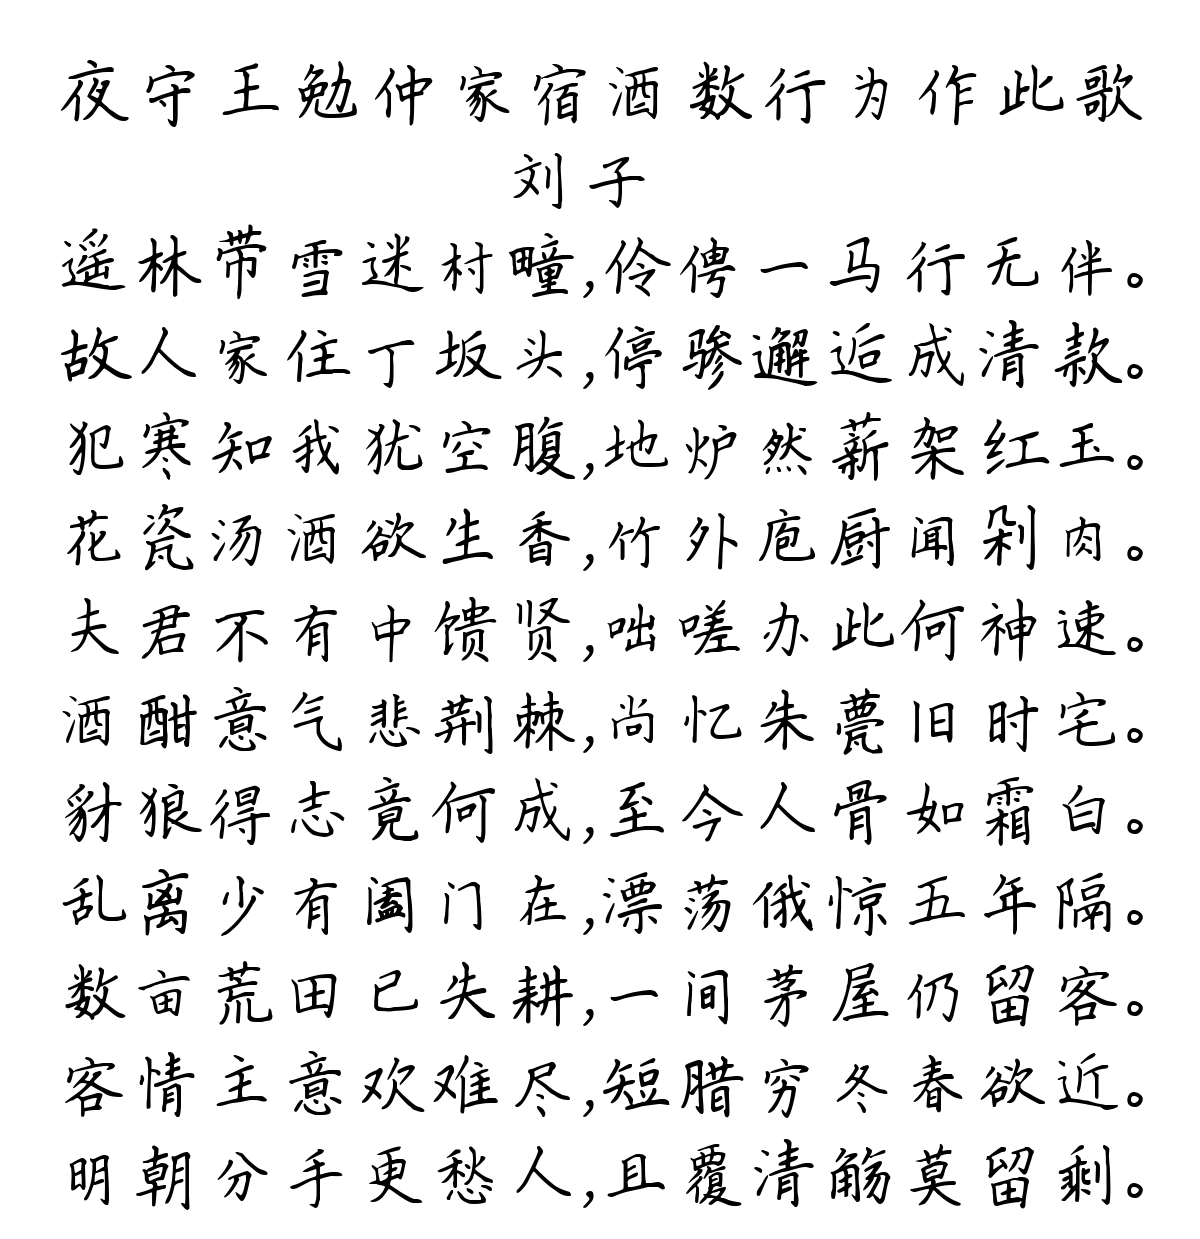 夜守王勉仲家宿酒数行为作此歌
刘子
遥林带雪迷村疃,伶俜一马行无伴。
故人家住丁坂头,停骖邂逅成清款。
犯寒知我犹空腹,地炉然薪架红玉。
花瓷汤酒欲生香,竹外庖厨闻剁肉。
夫君不有中馈贤,咄嗟办此何神速。
酒酣意气悲荆棘,尚忆朱甍旧时宅。
豺狼得志竟何成,至今人骨如霜白。
乱离少有阖门在,漂荡俄惊五年隔。
数亩荒田已失耕,一间茅屋仍留客。
客情主意欢难尽,短腊穷冬春欲近。
明朝分手更愁人,且覆清觞莫留剩。